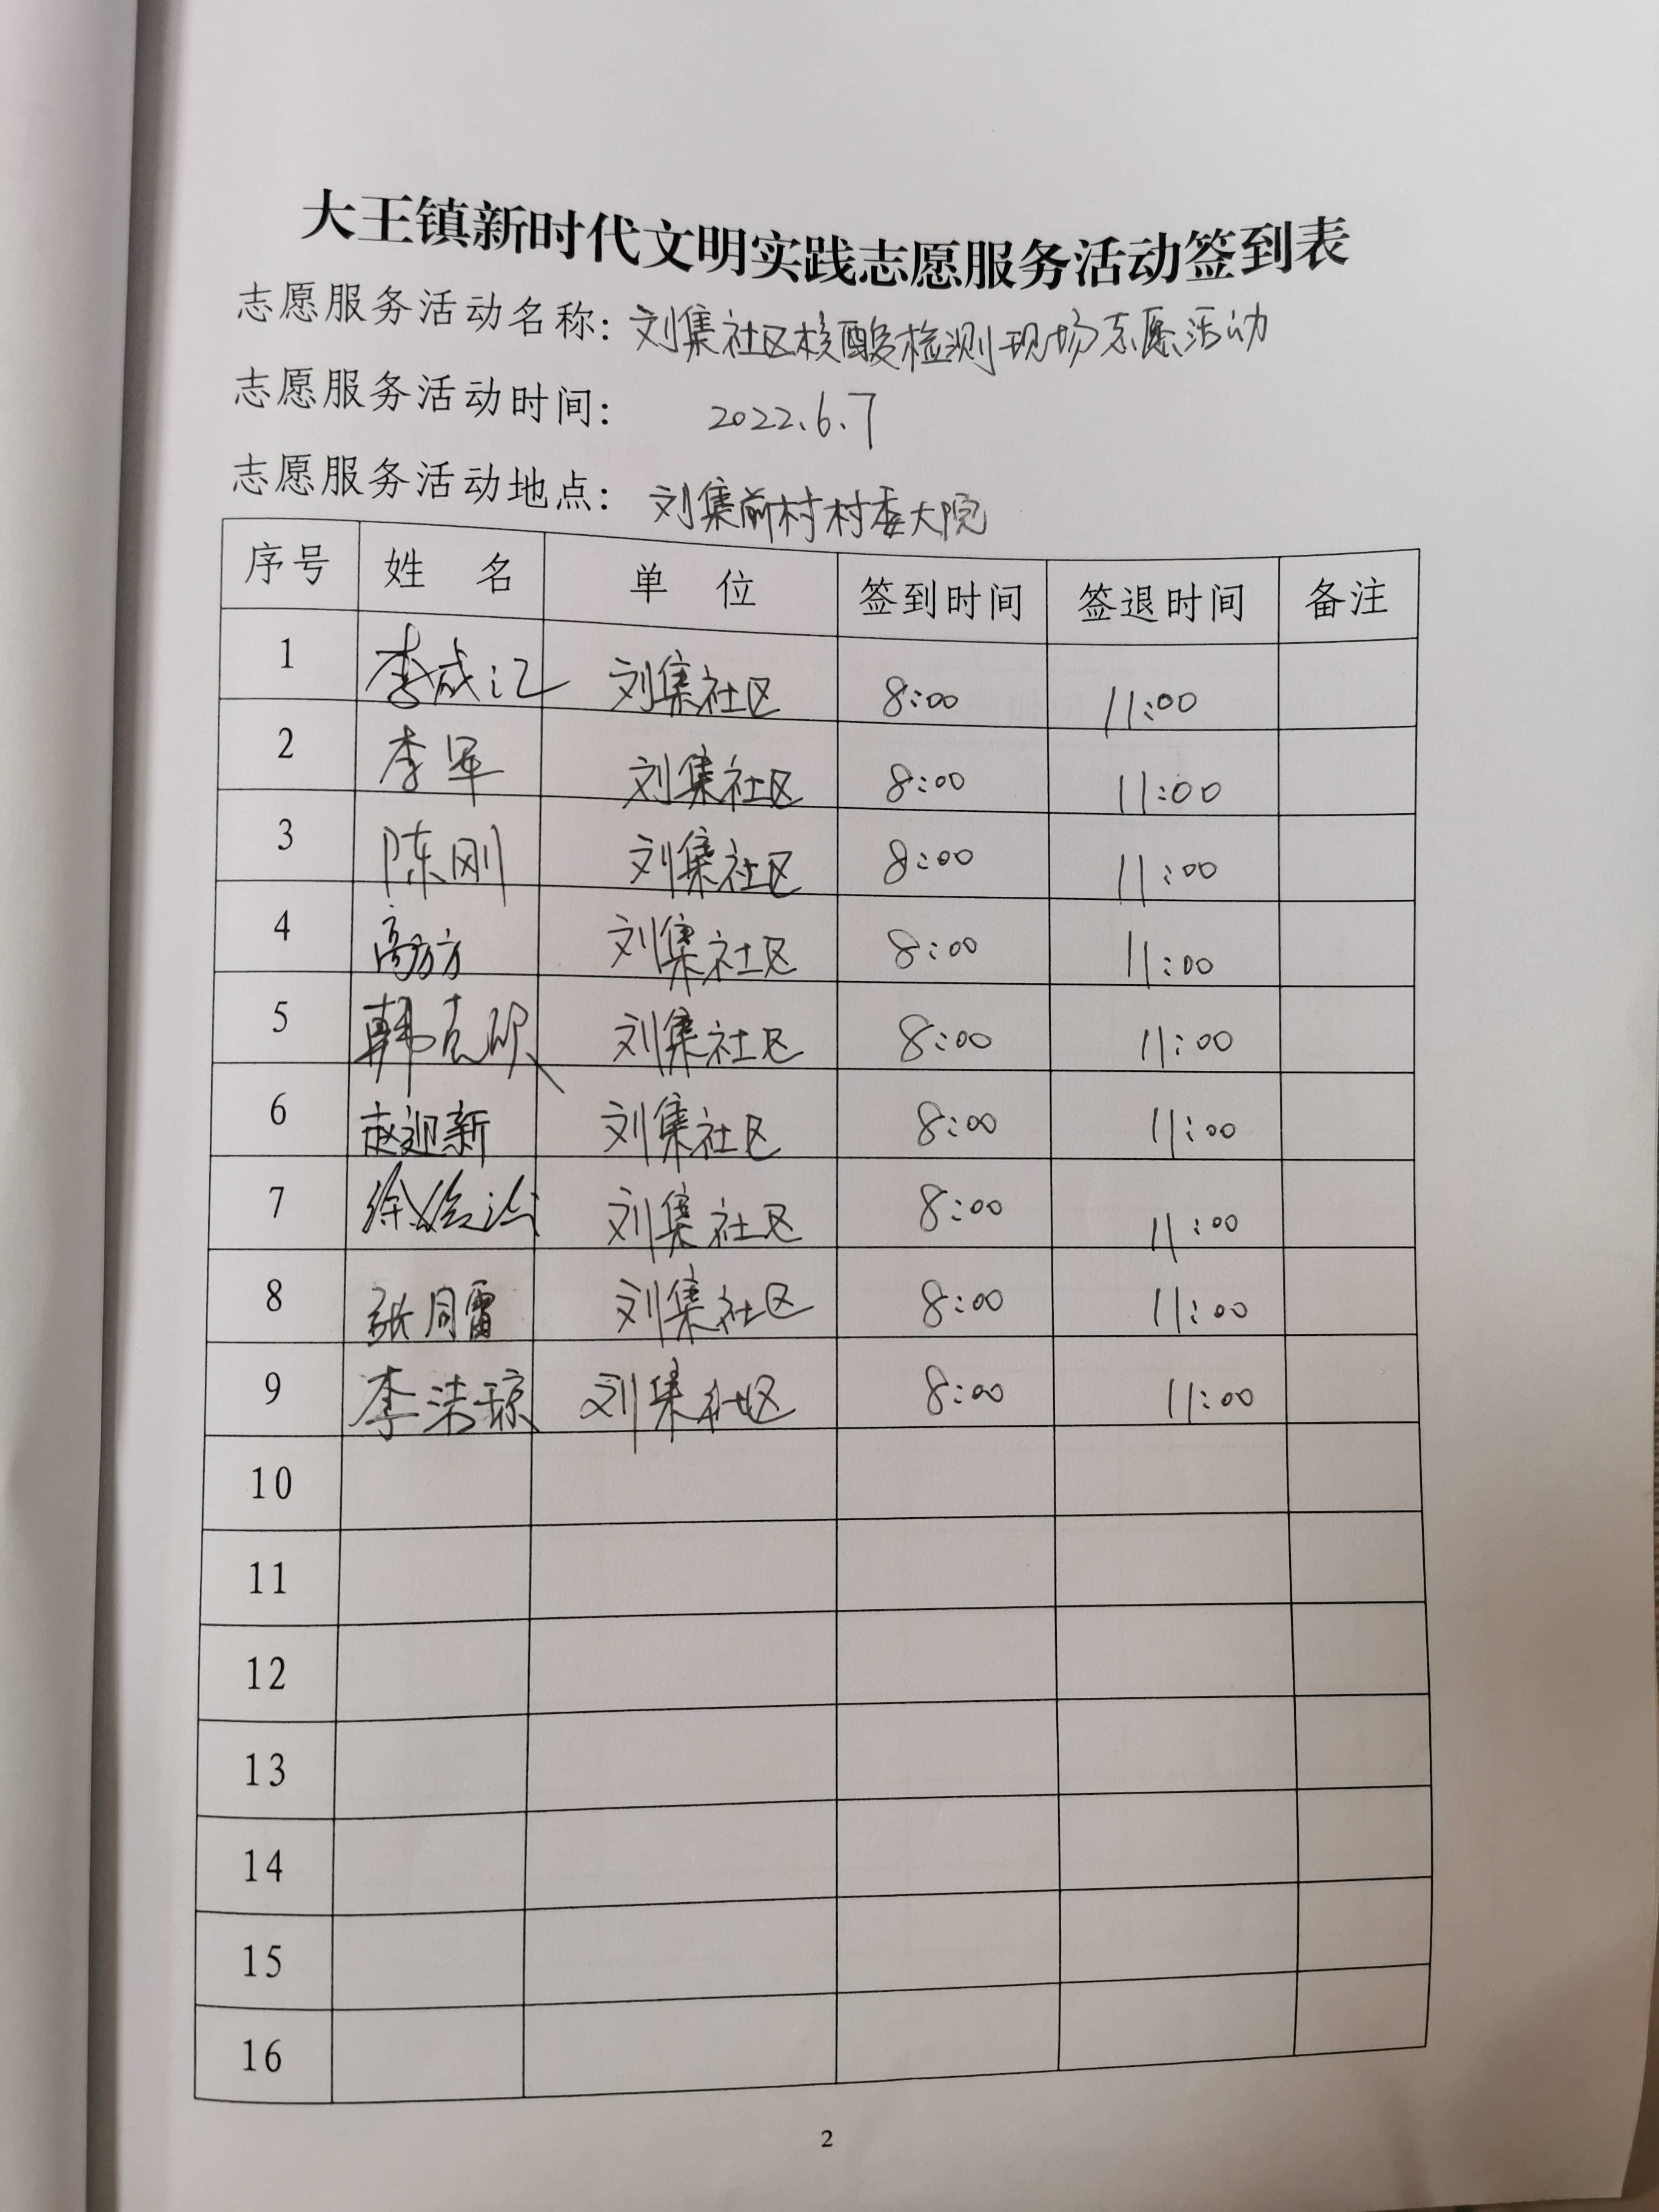 大王镇新时代文明实践志愿服务活动签到表
志愿服务活动名称: 刘集社区核酸检测现场志愿活动
志愿服务活动时间: 2022.6.7
志愿服务活动地点: 刘集前村村委大院
序号 姓名 单位 签到时间 签退时间 备注
1 李成江 刘集社区 8:00 11:00
2 李军 刘集社区 8:00 11:00
3 陈刚 刘集社区 8:00 11:00
4 高方方 刘集社区 8:00 11:00
5 韩克 刘集社区 8:00 11:00
6 赵迎新 刘集社区 8:00 11:00
7 徐 刘集社区 8:00 11:00
8 张同雷 刘集社区 8:00 11:00
9 李洁琼 刘集社区 8:00 11:00
10
11
12
13
14
15
16
2